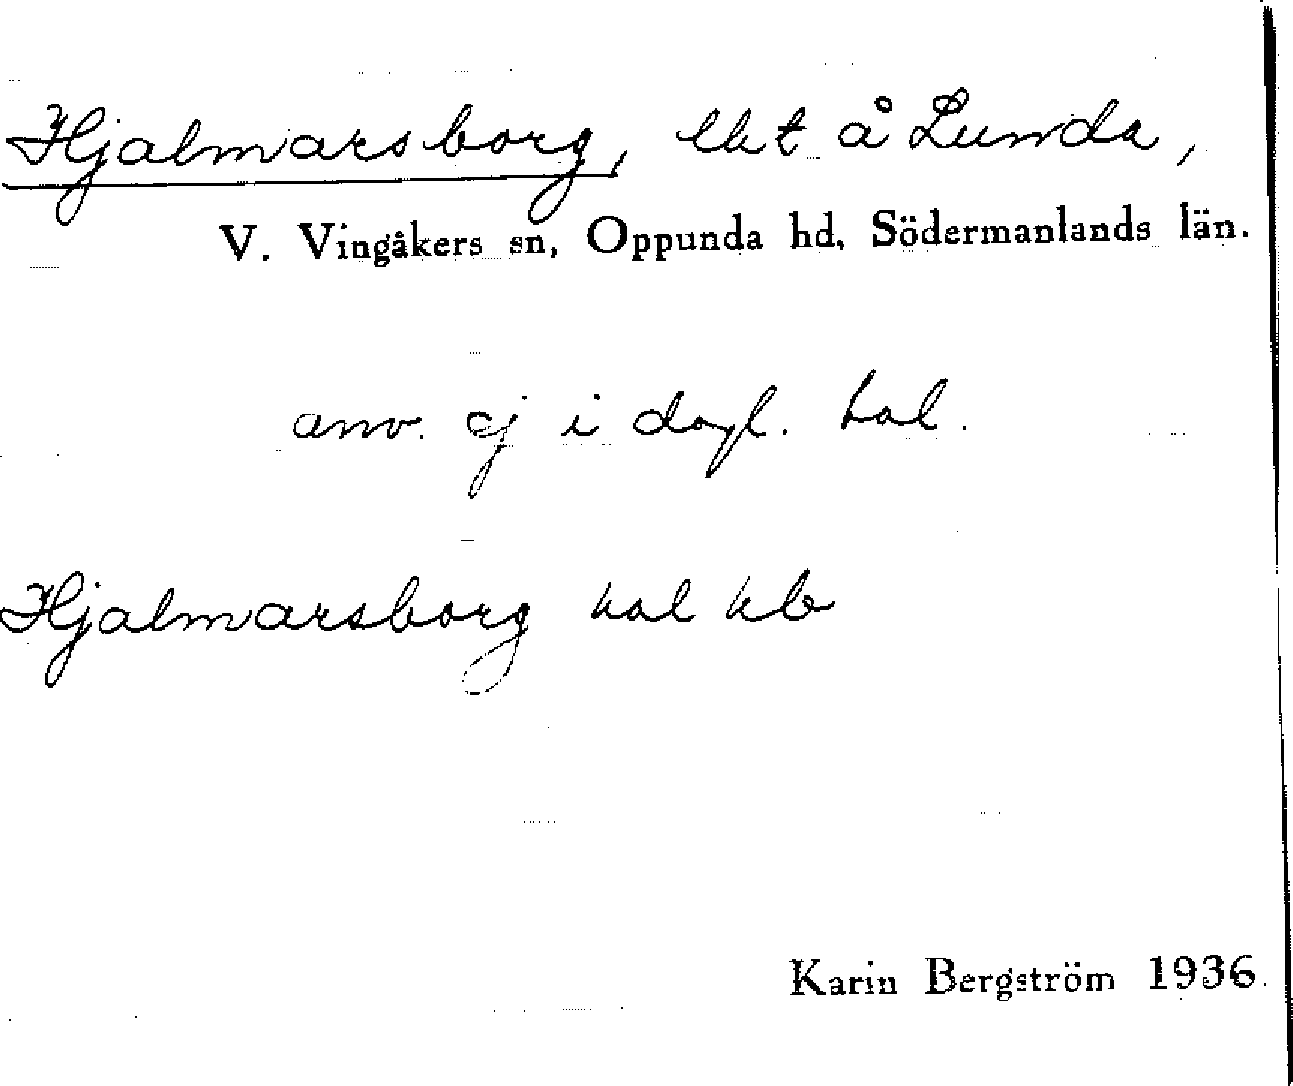 Hjalmarsborg, lht å Lunda,
V. Vingåkers sn, Oppunda hd, Södermanlands län.
anv. ej i dagl. tal.
Hjalmarsborg hal hb
Karin Bergström 1936.